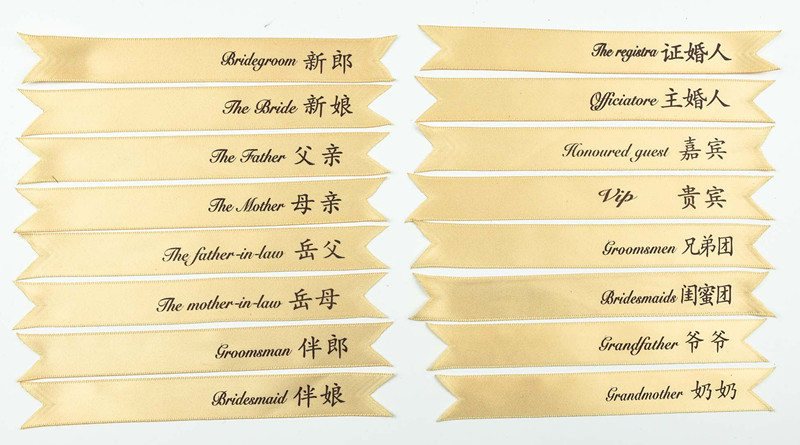 Bridegroom 新郎
The Bride 新娘
The Father 父亲
The Mother 母亲
The father-in-law 岳父
The mother-in-law 岳母
Groomsman 伴郎
Bridesmaid 伴娘
The registra 证婚人
Officiatore 主婚人
Honoured guest 嘉宾
Vip 贵宾
Groomsmen 兄弟团
Bridesmaids 闺蜜团
Grandfather 爷爷
Grandmother 奶奶